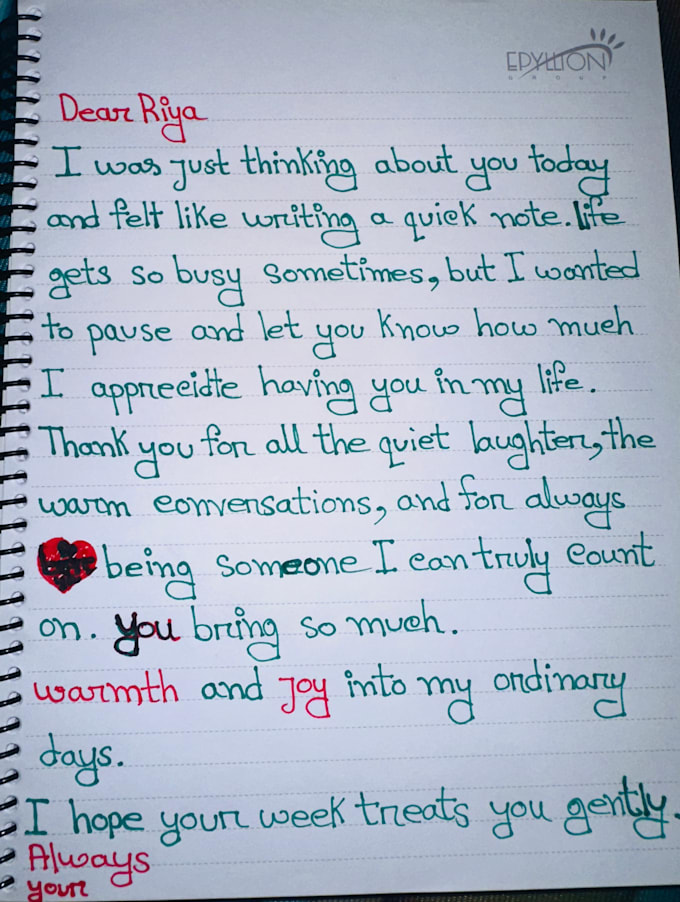 EPYLLION
GROUP
Dear Riya
I was just thinking about you today
and felt like writing a quick note. life
gets so busy sometimes, but I wanted
to pause and let you know how much
I appreciate having you in my life.
Thank you for all the quiet laughter, the
warm conversations, and for always
being someone I can truly count
on. you bring so much.
warmth and joy into my ordinary
days.
I hope your week treats you gently.
Always
your